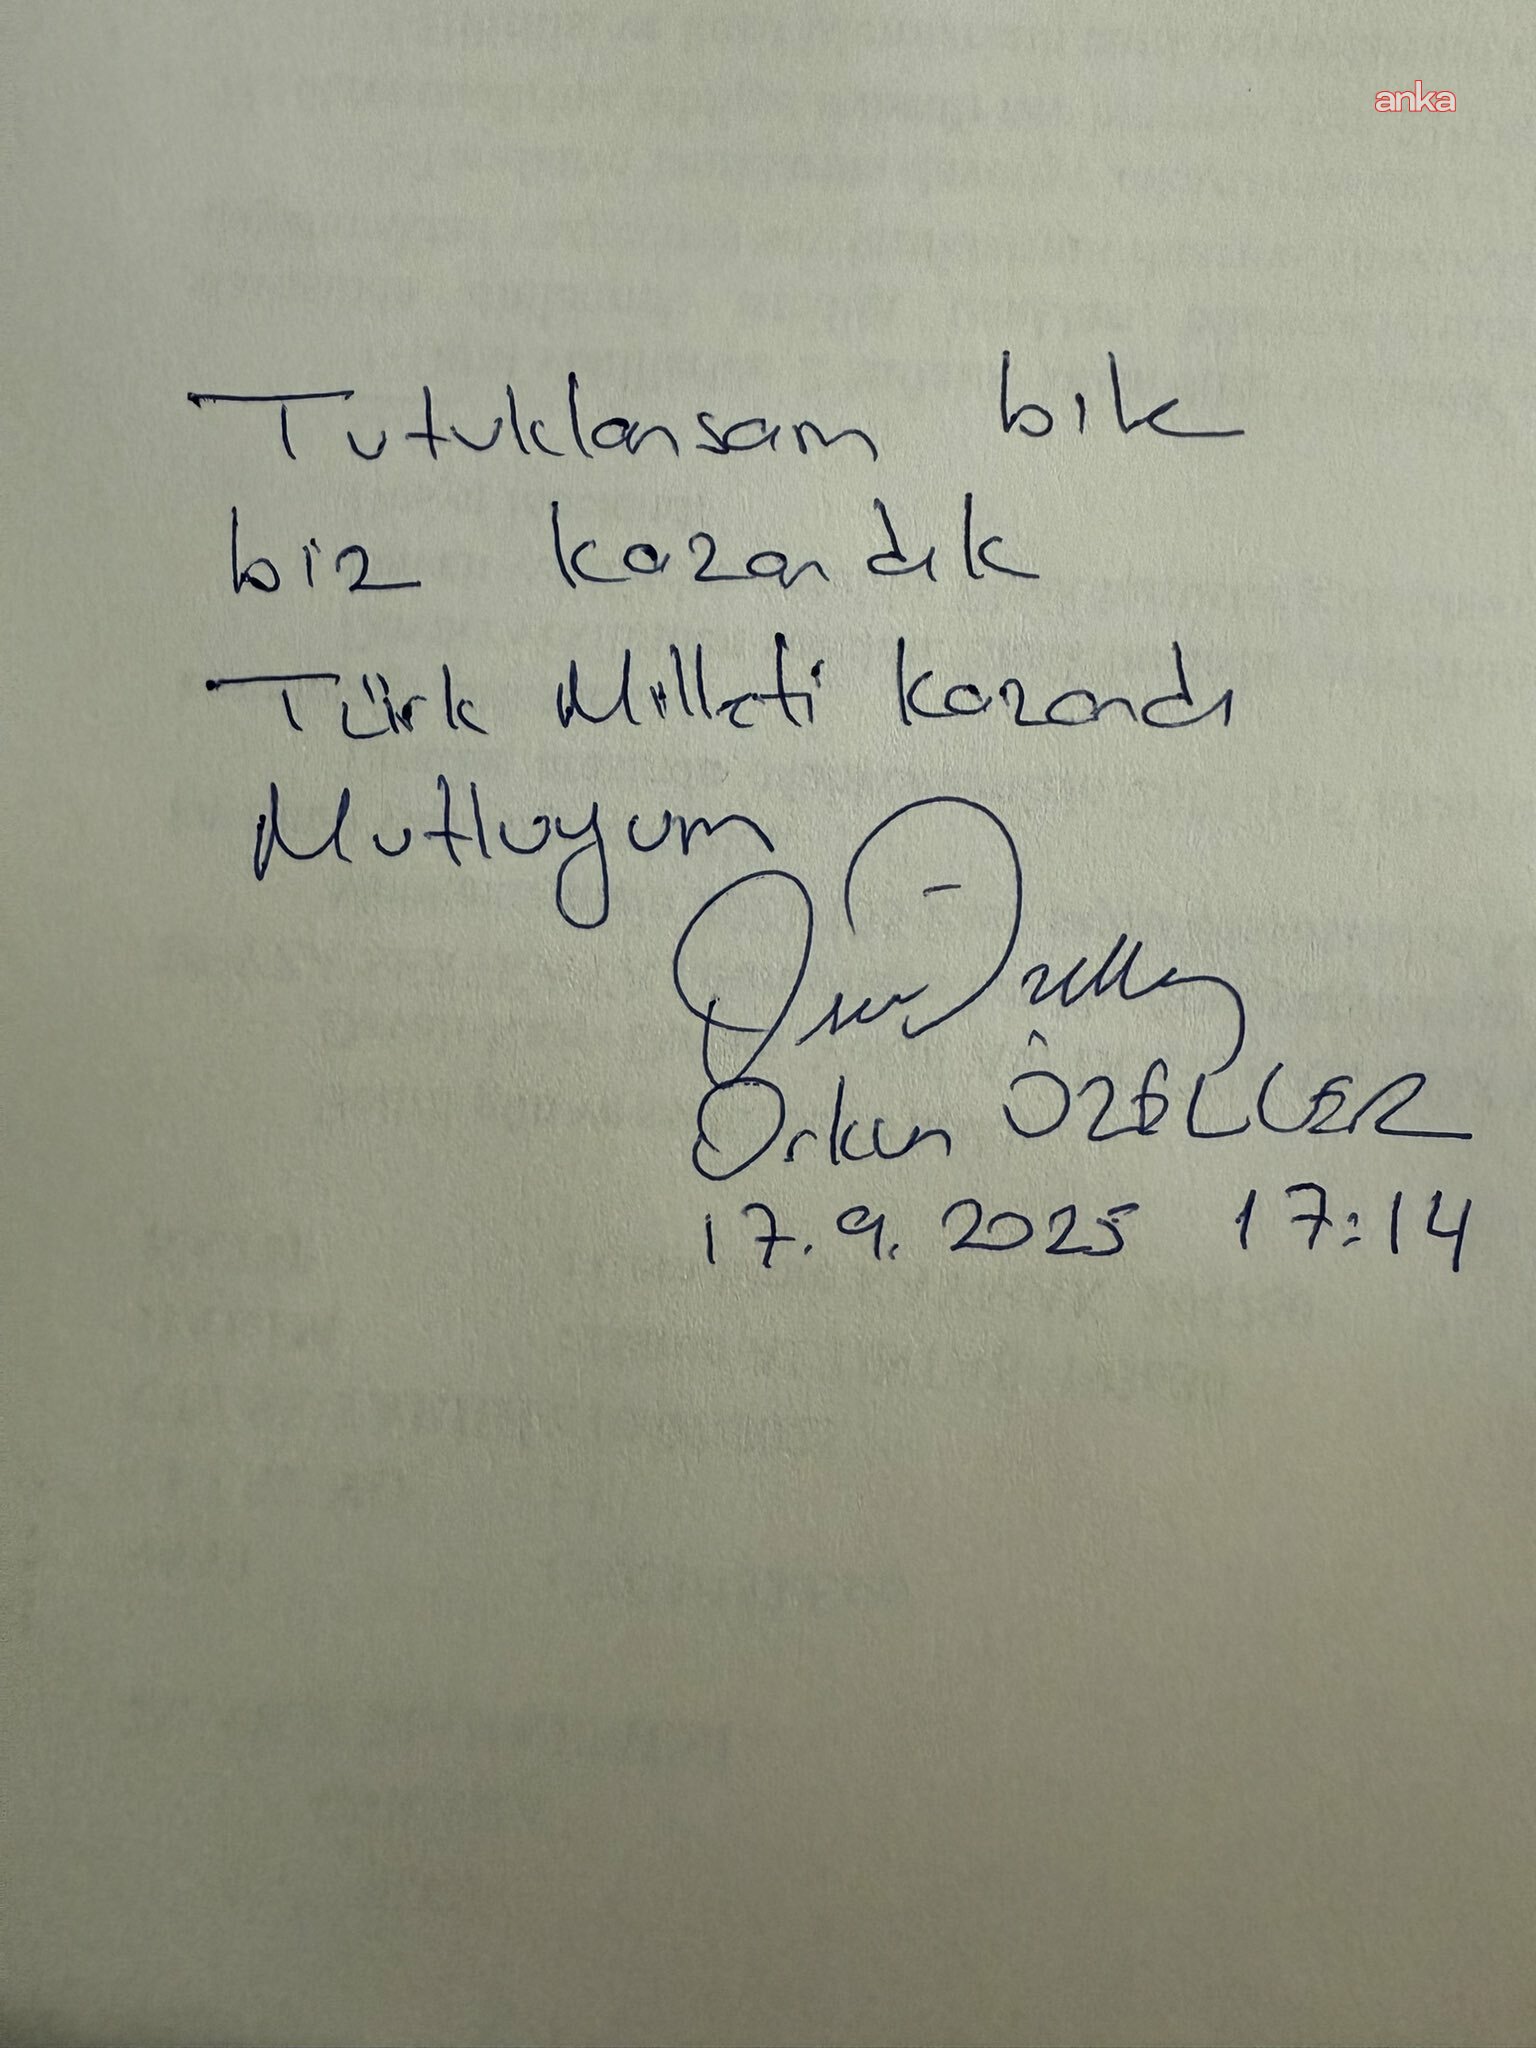 anka
Tutuklansam bile
biz kazandık
Türk Milleti kazandı
Mutluyum
Orkun ÖZELLER
17.9.2025 17:14